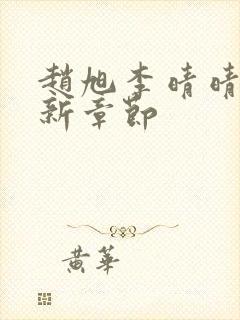 趙旭李晴晴
新章節
黃華